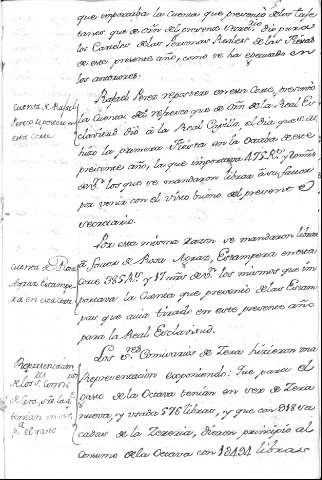 que importaba la Cuenta que presentó de los tafe-
tanes que de oñ del presente Secrio dio para
los Canceles de las Personas Reales de las Fiestas
de este presente año, como se ha executado en
los anteriores.
Cuenta de Rafael
Perez repostero en
esta Corte
Rafael Perez repostero en esta Corte, presentó
la Cuenta del refresco que de oñ de la Real Es-
clavitud dió á la Real Capilla, el dia que se
hizo la primera Fiesta en la Octaba de este
presente año, la que importaba 475 Rs. y
de Von los que se mandaron librar á su favor,
por venir con el visto bueno del presente
Secretario.
Cuenta de Rosa
Agraz Estampe-
ra en esta Corte
Por esta misma razon se mandaron librar
á favor de Rosa Agraz, Estampera en esta
Corte 385 Rs. y 17 mrs de Von los mismos que im-
portaba la Cuenta que presentó de las Estam-
pas que avia tirado en este presente año
para la Real Esclavitud.
Representacion
de los Ses. Comisa-
rios de Cera, sre la qe
tenian in
pa el gasto
Los Sres Comisarios de Zera hizieron una
Representacion exponiendo: Que para el
gasto de la Octava tenian en ser de Zera
nueva, y usada 576 libras, y que con 918 sa-
cadas de la Zereria, dieron principio al
Consumo de la Octava con 1@494 libras